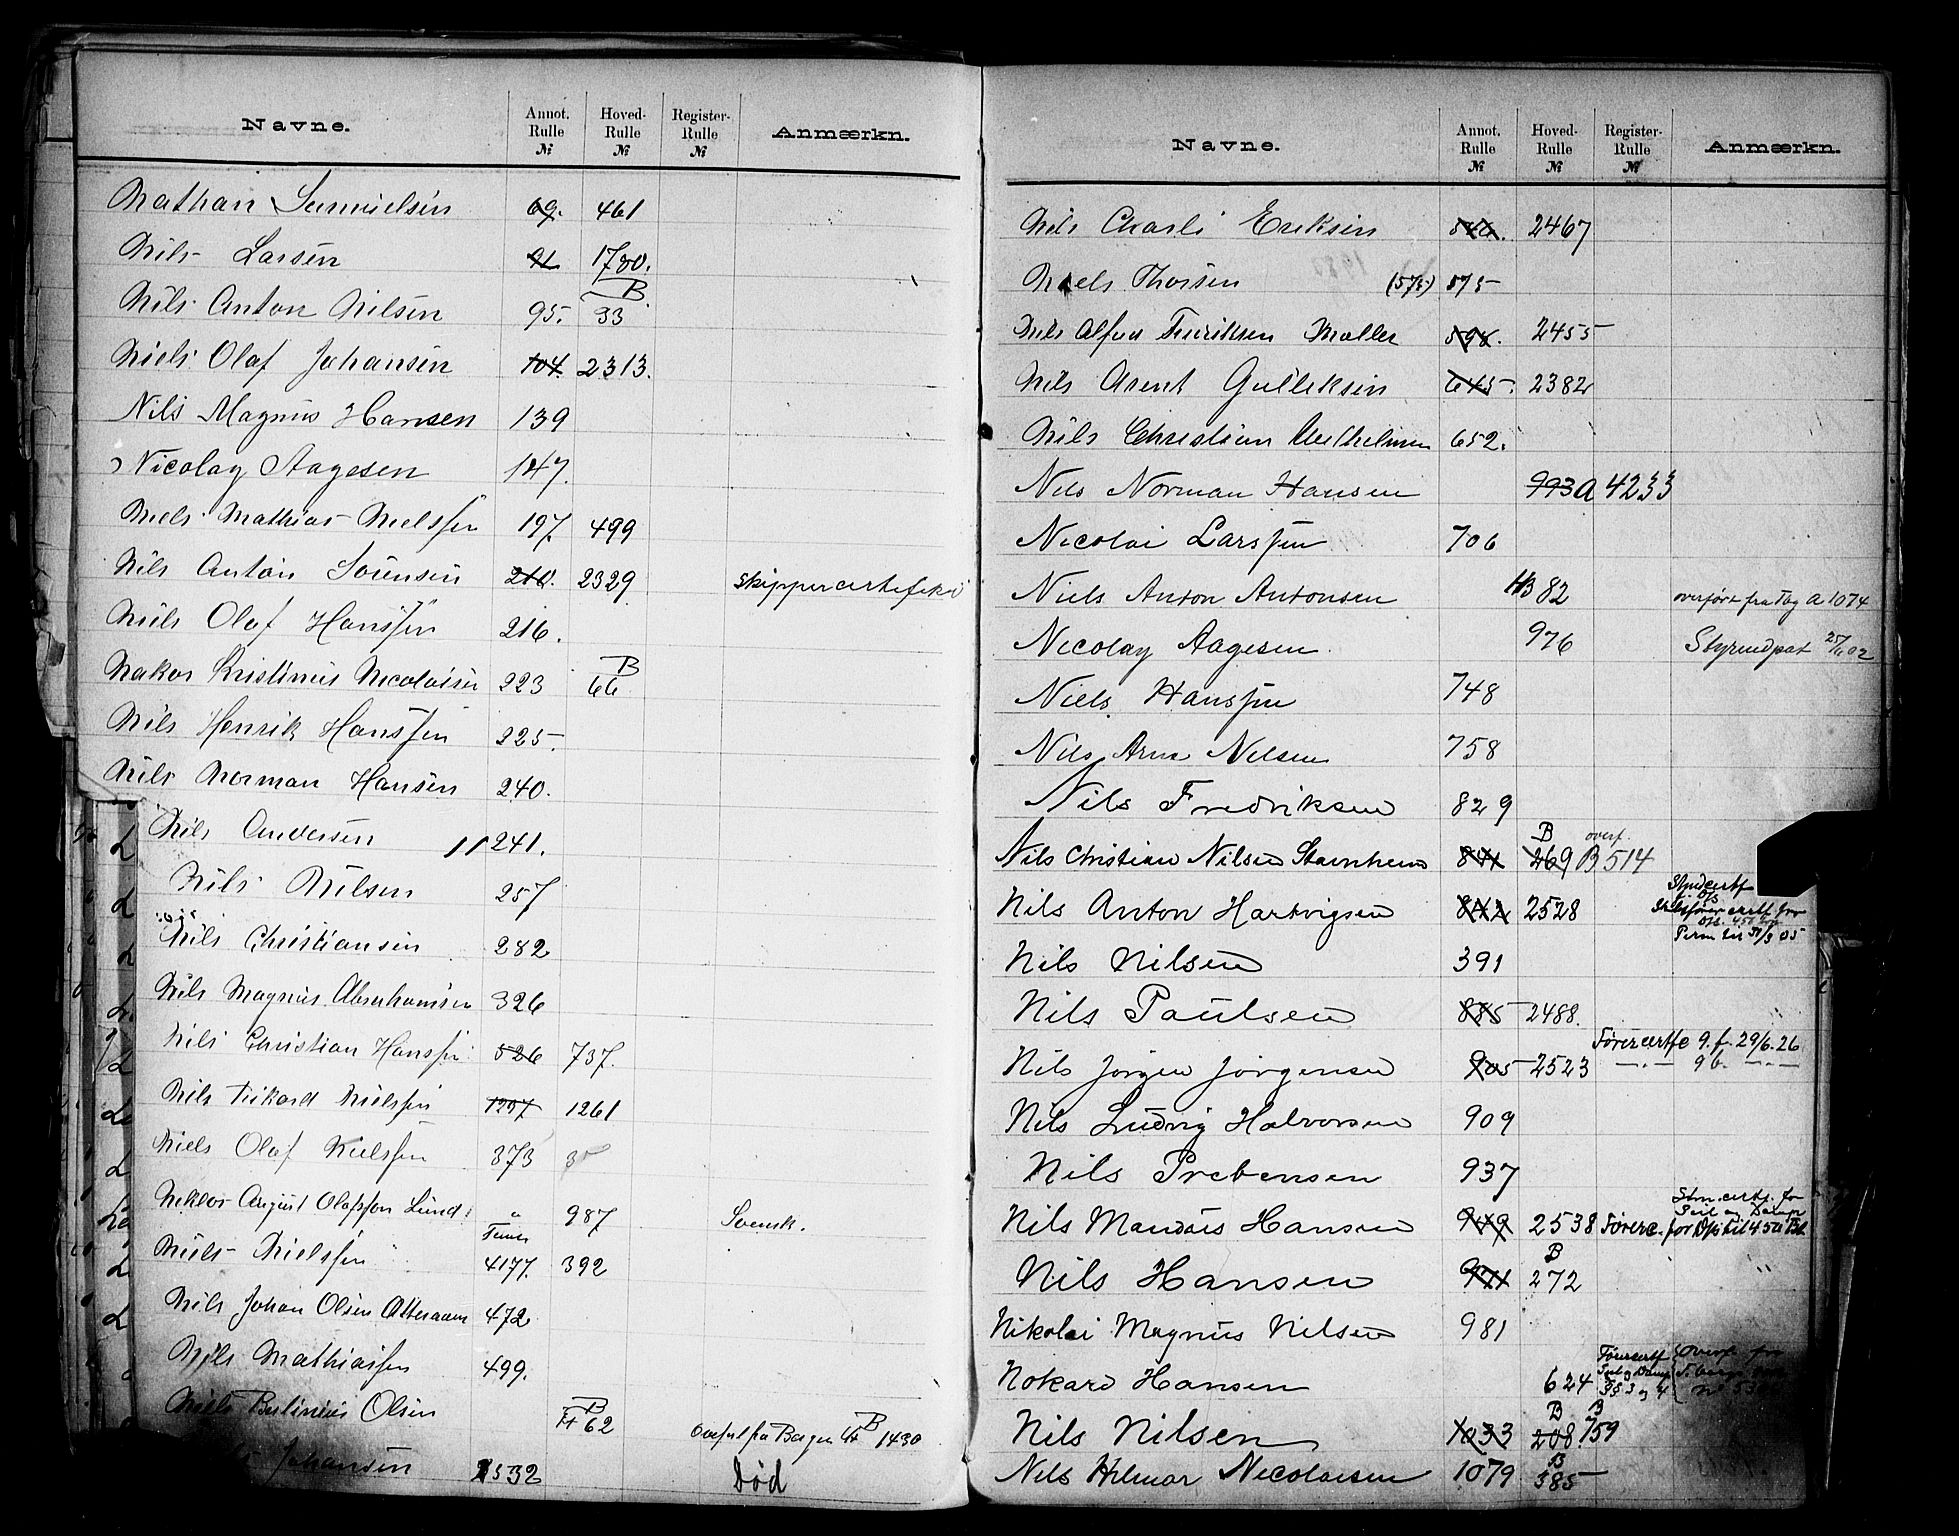 Navne. Annot. Rulle № Hoved- Rulle № Register- Rulle № Anmærkn.
Nathan Samuelsen 69. 461
Nils Larsen 91 1730.
Nils Anton Nilsen 95. B 33
Niels Olaf Johansen 104. 2313.
Nils Magnus Hansen 139
Nicolay Aagesen 147.
Niels Mathias Nielssen 197. 499
Nils Anton Sörensen 210. 2329 Skippercertifikat
Nils Olaf Hanssen 216.
Nakor Kristinius Nicolaisen 223 B 66
Nils Henrik Hanssen 225.
Nils Norman Hansen 240.
Nils Andersen 11 241.
Nils Nilsen 257
Nils Christiansen 282
Nils Magnus Abrahamsen 326
Nils Christian Hanssen 526 737.
Nils Rikard Nielssen 1207 1261
Niels Olaf Nielssen 373
Niklas August Olafsson Lund 987 Svensk.
Niels Nielssen 4177. 392
Nils Johan Olsen Atteraaen 472
Nils Mathiassen 499.
Niels Berlinius Olsen B H 62 Overført fra Bergen H B 1430
Johansen 532 Død
Navne. Annot. Rulle № Hoved- Rulle № Register- Rulle № Anmærkn.
Nils Charli Eriksen 2467
Niels Thorsen (575) 575
Nils Alfred Fredriksen Møller 598. 2455
Nils Arent Gulleksen 645 2382
Nils Christian 652.
Nils Norman Hansen 993 A 4233
Nicolai Larssen 706
Niels Anton Antonsen HB 82 overført fra Tbg A 1074
Nicolay Aagesen 976 Styrmdpat 25/6 02
Niels Hanssen 748
Nils Arne Nilsen 758
Nils Fredriksen 829
Nils Christian Nilsen Stavnheim 841 B 269 overf. B 514
Nils Anton Hartvigsen 842 2528
Nils Nilsen 391
Nils Paulsen 885 2488.
Nils Jörgen Jörgensen 905 2523 Førercertf 9.f. 29/6.26
—.— 9b. —.—
Nils Ludvig Halvorsen 909
Nils Prebensen 937
Nils Mandius Hansen 949 2538 Førerc. for Ds til 450 Tbl
Nils Hansen 971 B 272
Nikolai Magnus Nilsen 981
Nokard Hansen 624
Nils Nilsen 1033 B 208 B 759
Nils Hilmar Nicolaisen 1079 B 385